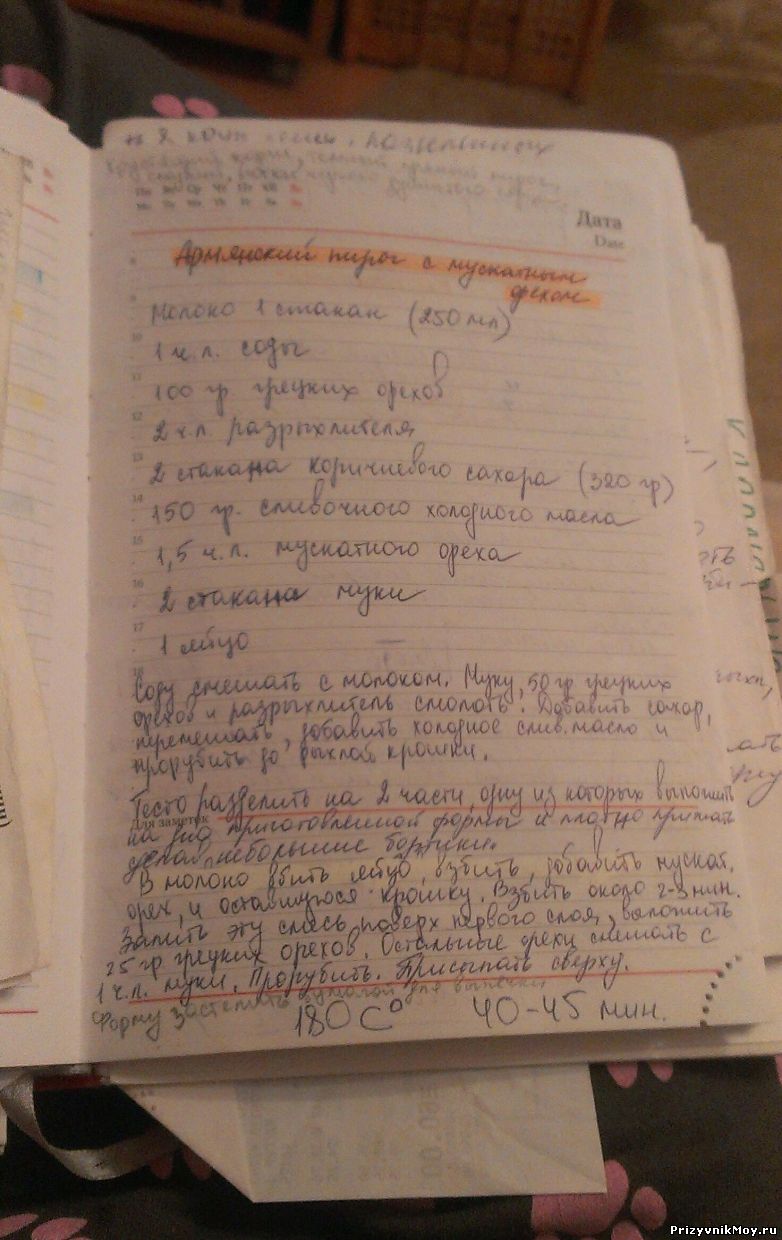 Дата
Date
Армянский пирог с мускатным
орехом
Молоко 1 стакан (250 мл)
1 ч.л. соды
100 гр. грецких орехов
2 ч.л. разрыхлителя
2 стакана коричневого сахара (320 гр)
150 гр. сливочного холодного масла
1,5 ч.л. мускатного ореха
2 стакана муки
1 яйцо
Соду смешать с молоком. Муку, 50 гр грецких
орехов и разрыхлитель смолоть. Добавить сахар,
перемешать, добавить холодное слив. масло и
прорубить до рыхлой крошки.
Тесто разделить на 2 части, одну из которых выложить
Для заметок
на дно приготовленной формы и плотно прижать
делая небольшие бортики.
В молоко вбить яйцо, взбить, добавить мускат.
орех, и оставшуюся крошку. Взбить около 2-3 мин.
Залить эту смесь поверх первого слоя, выложить
25 гр грецких орехов. Остальные орехи смешать с
1 ч.л. муки. Прорубить. Присыпать сверху.
Форму застелить бумагой для выпечки
180 С° 40-45 мин.
PrizyvnikMoy.ru